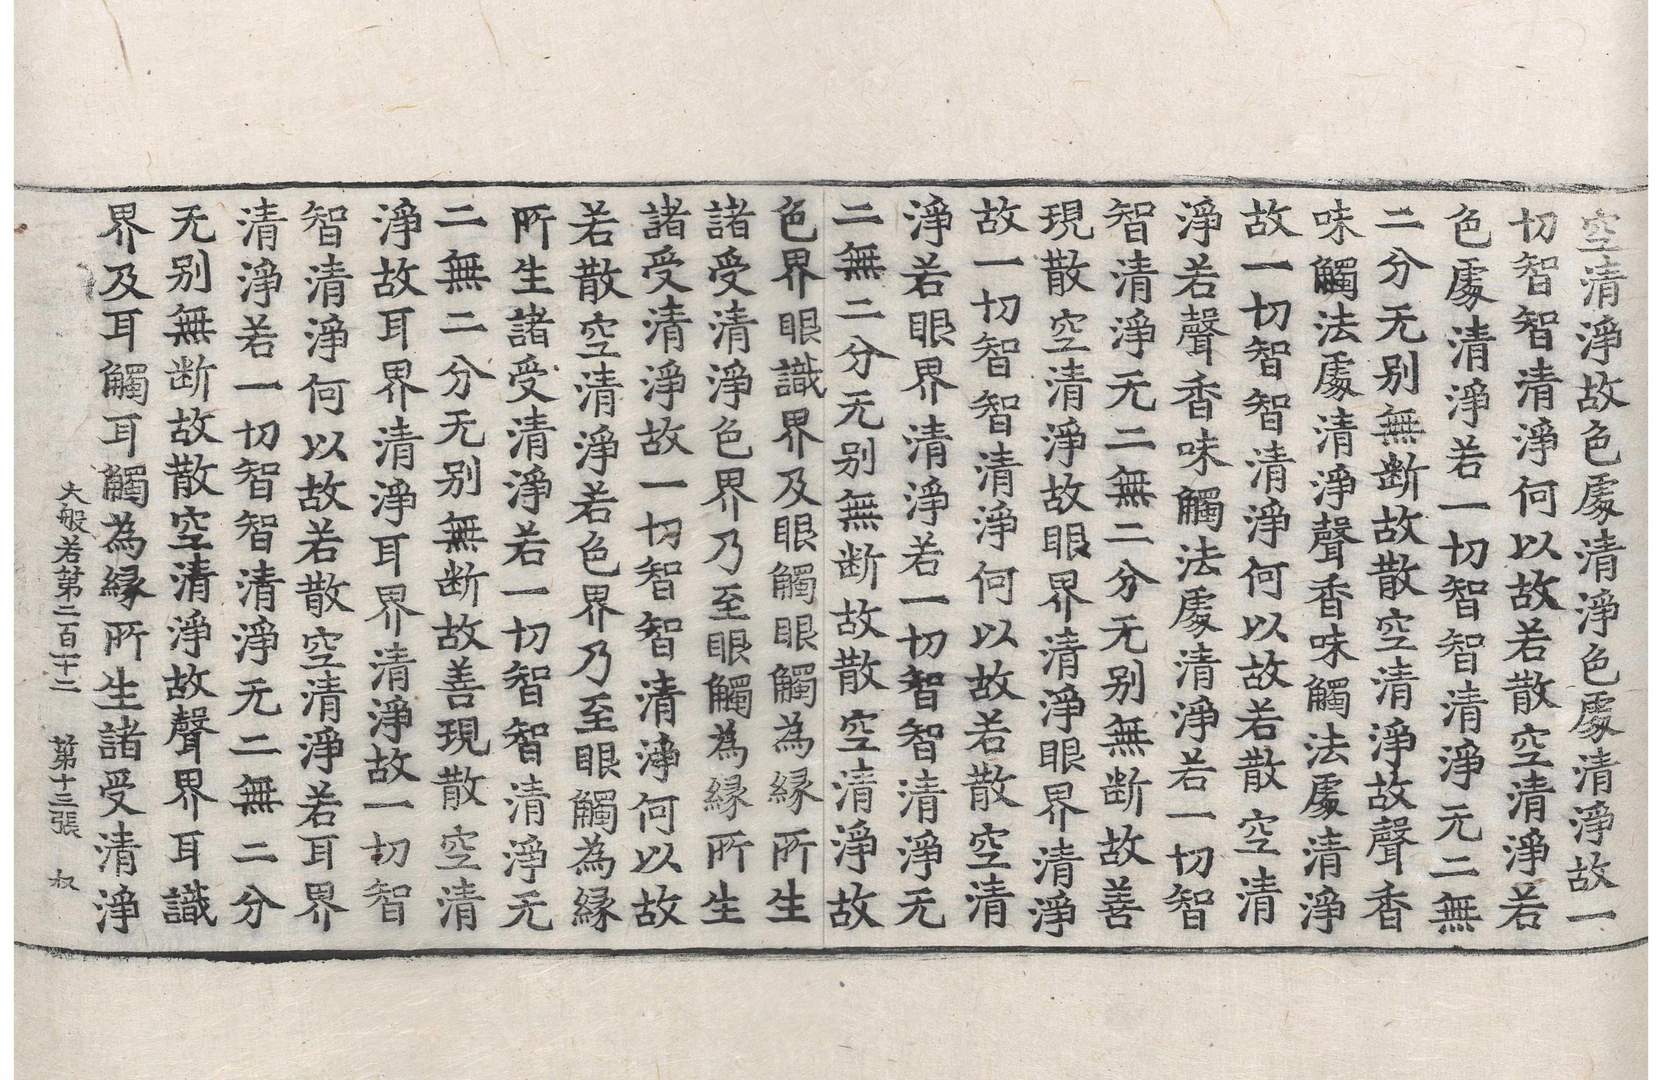 空清淨故色處清淨色處清淨故一
切智智清淨何以故若散空清淨若
色處清淨若一切智智清淨无二無
二分无别無断故散空清淨故聲香
味觸法處清淨聲香味觸法處清淨
故一切智智清淨何以故若散空清
淨若聲香味觸法處清淨若一切智
智清淨无二無二分无别無断故善
現散空清淨故眼界清淨眼界清淨
故一切智智清淨何以故若散空清
淨若眼界清淨若一切智智清淨无
二無二分无别無断故散空清淨故
色界眼識界及眼觸眼觸為縁所生
諸受清淨色界乃至眼觸為縁所生
諸受清淨故一切智智清淨何以故
若散空清淨若色界乃至眼觸為縁
所生諸受清淨若一切智智清淨无
二無二分无别無断故善現散空清
淨故耳界清淨耳界清淨故一切智
智清淨何以故若散空清淨若耳界
清淨若一切智智清淨无二無二分
无别無断故散空清淨故聲界耳識
界及耳觸耳觸為縁所生諸受清淨
大般若第二百一十二 第十三張 収